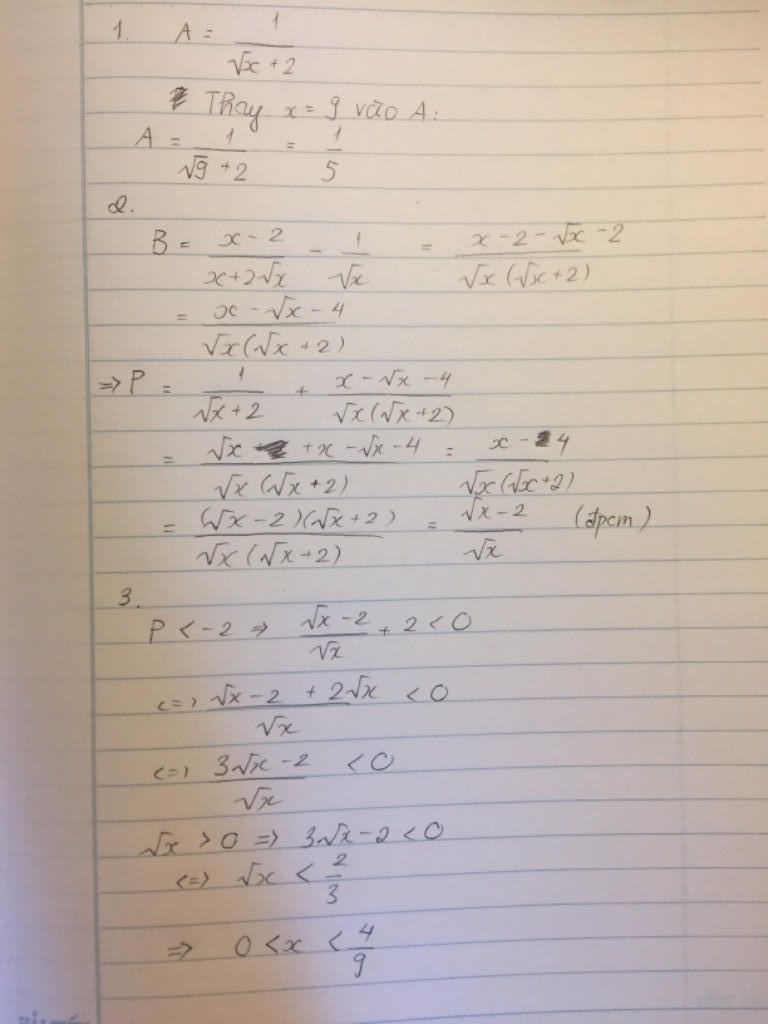 1. A = 1/(√x + 2)
Thay x = 9 vào A:
A = 1/(√9 + 2) = 1/5
2.
B = (x - 2)/(x + 2√x) - 1/√x = (x - 2 - √x - 2)/(√x(√x + 2))
= (x - √x - 4)/(√x(√x + 2))
=> P = 1/(√x + 2) + (x - √x - 4)/(√x(√x + 2))
= (√x + x - √x - 4)/(√x(√x + 2)) = (x - 4)/(√x(√x + 2))
= ((√x - 2)(√x + 2))/(√x(√x + 2)) = (√x - 2)/√x (đpcm)
3.
P < -2 => (√x - 2)/√x + 2 < 0
<=> (√x - 2 + 2√x)/√x < 0
<=> (3√x - 2)/√x < 0
√x > 0 => 3√x - 2 < 0
<=> √x < 2/3
=> 0 < x < 4/9